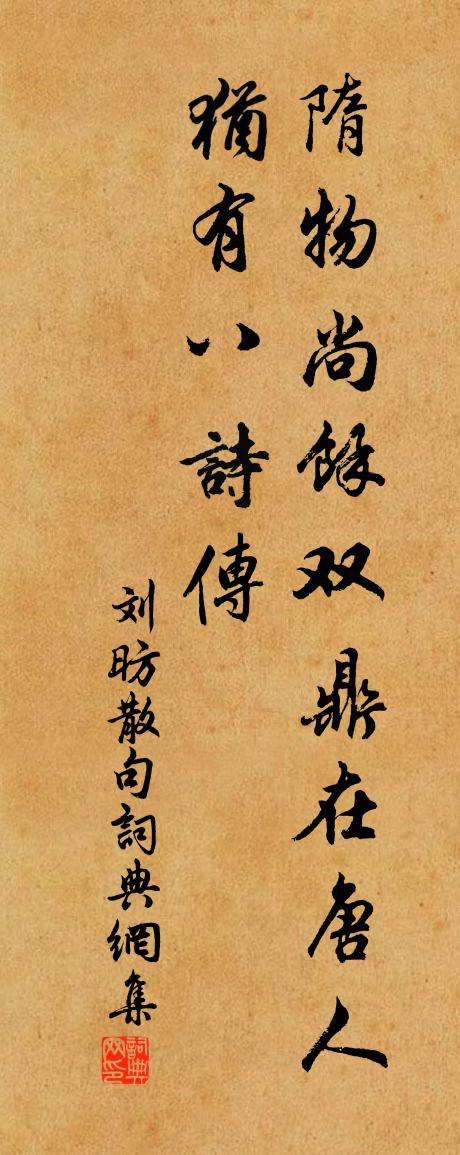 隋物尚餘双鼎在唐人
猶有八詩傳
刘昉散句詞典網集
詞典網印